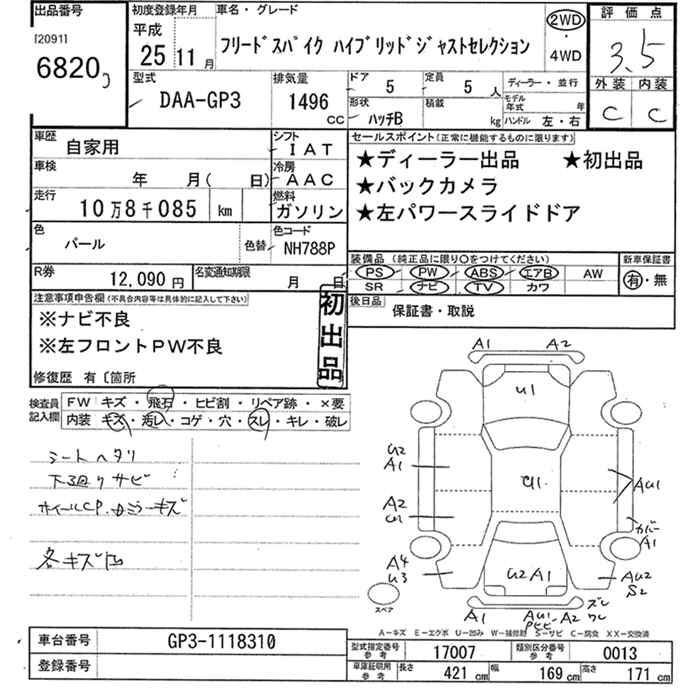 出品番号 初度登録年月 車名・グレード 評価点
[2091]
6820
平成
25 11月
フリードスパイク ハイブリッドジャストセレクション
2WD
・
4WD
3.5
外装 内装
C C
型式
DAA-GP3
排気量
1496
CC
ドア 5 定員 5 人
形状 ハッチB 積載 kg
ディーラー・並行
モデル年式 年
ハンドル 左・右
車歴 自家用
シフト IAT
車検 年 月( 日)
冷房 AAC
走行 10万8千085 km
燃料 ガソリン
色 パール 色替
色コード NH788P
セールスポイント(正常に機能するものに限ります)
★ディーラー出品 ★初出品
★バックカメラ
★左パワースライドドア
装備品 (純正品に限り○をつけてください) 新車保証書
PS PW ABS エアB AW
SR ナビ TV カワ
有・無
R券 12,090円 名変通知期限 月 日
後日品 保証書・取説
注意事項申告欄(不具合内容等は具体的に記入して下さい)
初出品
※ナビ不良
※左フロントPW不良
修復歴 有〔箇所
検査員記入欄
FW キズ・飛石・ヒビ割・リペア跡・×要
内装 キズ・汚れ・コゲ・穴・スレ・キレ・破レ
シートヘタリ
下廻りサビ
各キズ凹
A1 A2
U1
U2
A1
U1
AU1
A2
U1
カバー
A1
A4
U3
U2A1
AU2
S2
スペア
A1 AU1 A2
A－キズ E－エクボ U－凹み W－補修跡 S－サビ C－腐食 XX－交換済
車台番号 GP3-1118310
登録番号
型式指定番号 参考 17007 類別区分番号 参考 0013
車庫証明用 参考 長さ 421 cm 幅 169 cm 高さ 171 cm